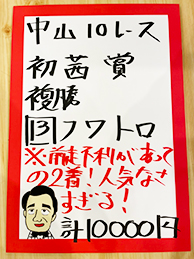 中山10レース
初茜賞
複勝
13フワトロ
※前走不利があって
の2着!人気なさ
すぎる!
計10000円